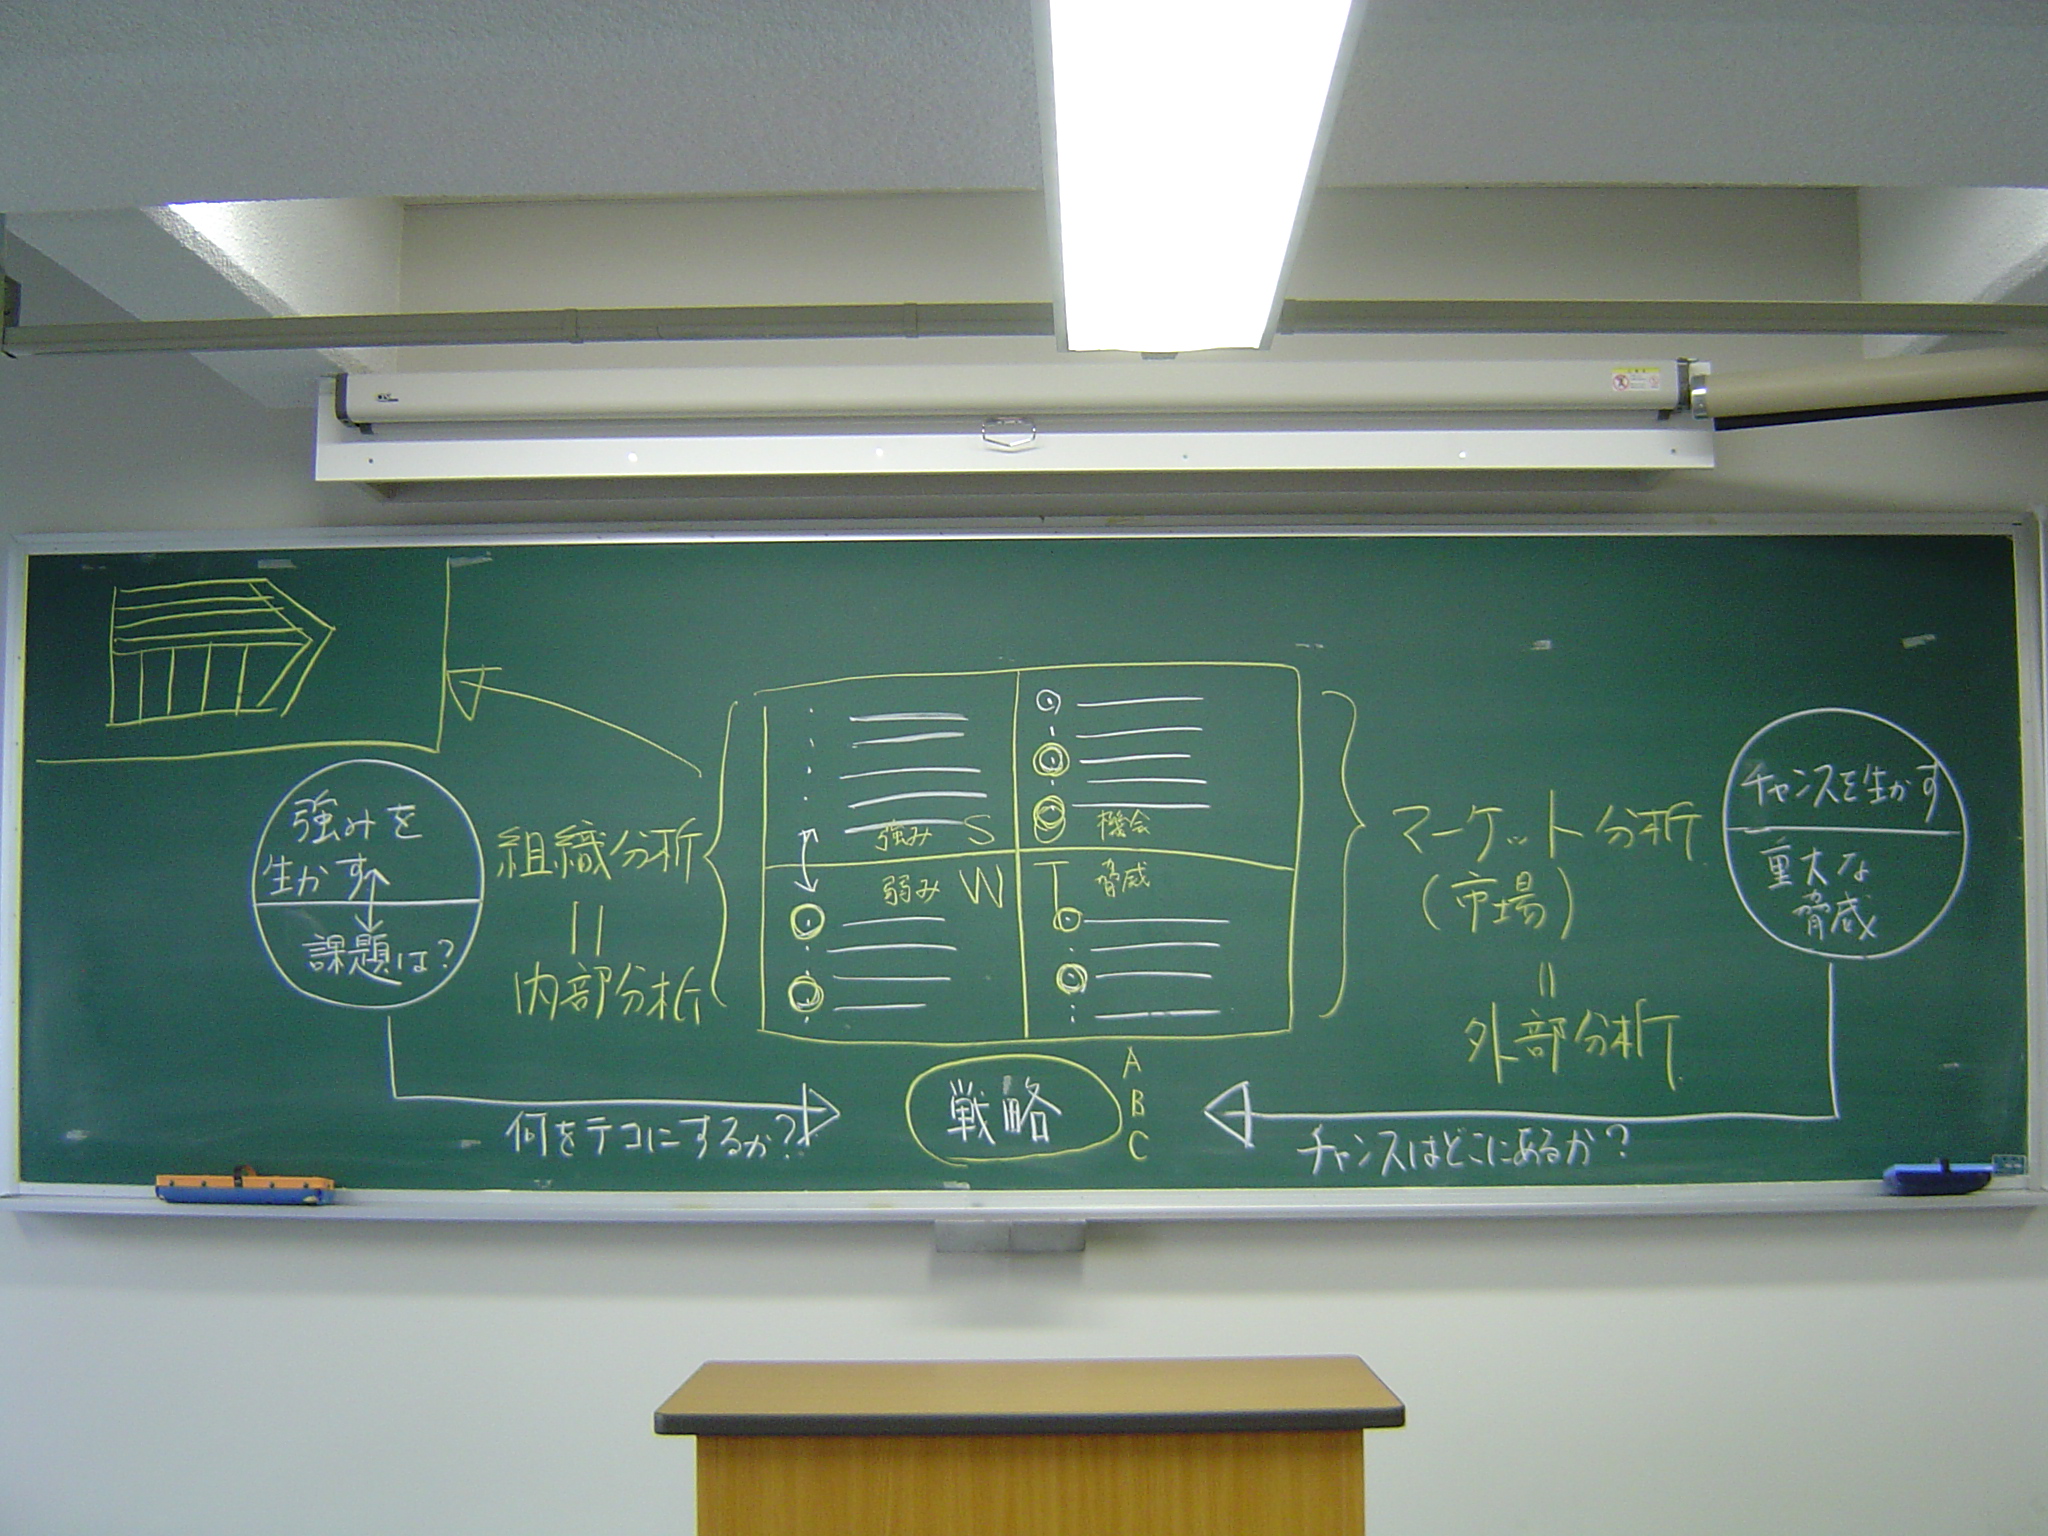 強みを
生かす
課題は?
組織分析
=
内部分析
強み S
弱み W
O 機会
T 脅威
マーケット分析
(市場)
=
外部分析
チャンスを生かす
重大な
脅威
何をテコにするか?
戦略
A
B
C
チャンスはどこにあるか?